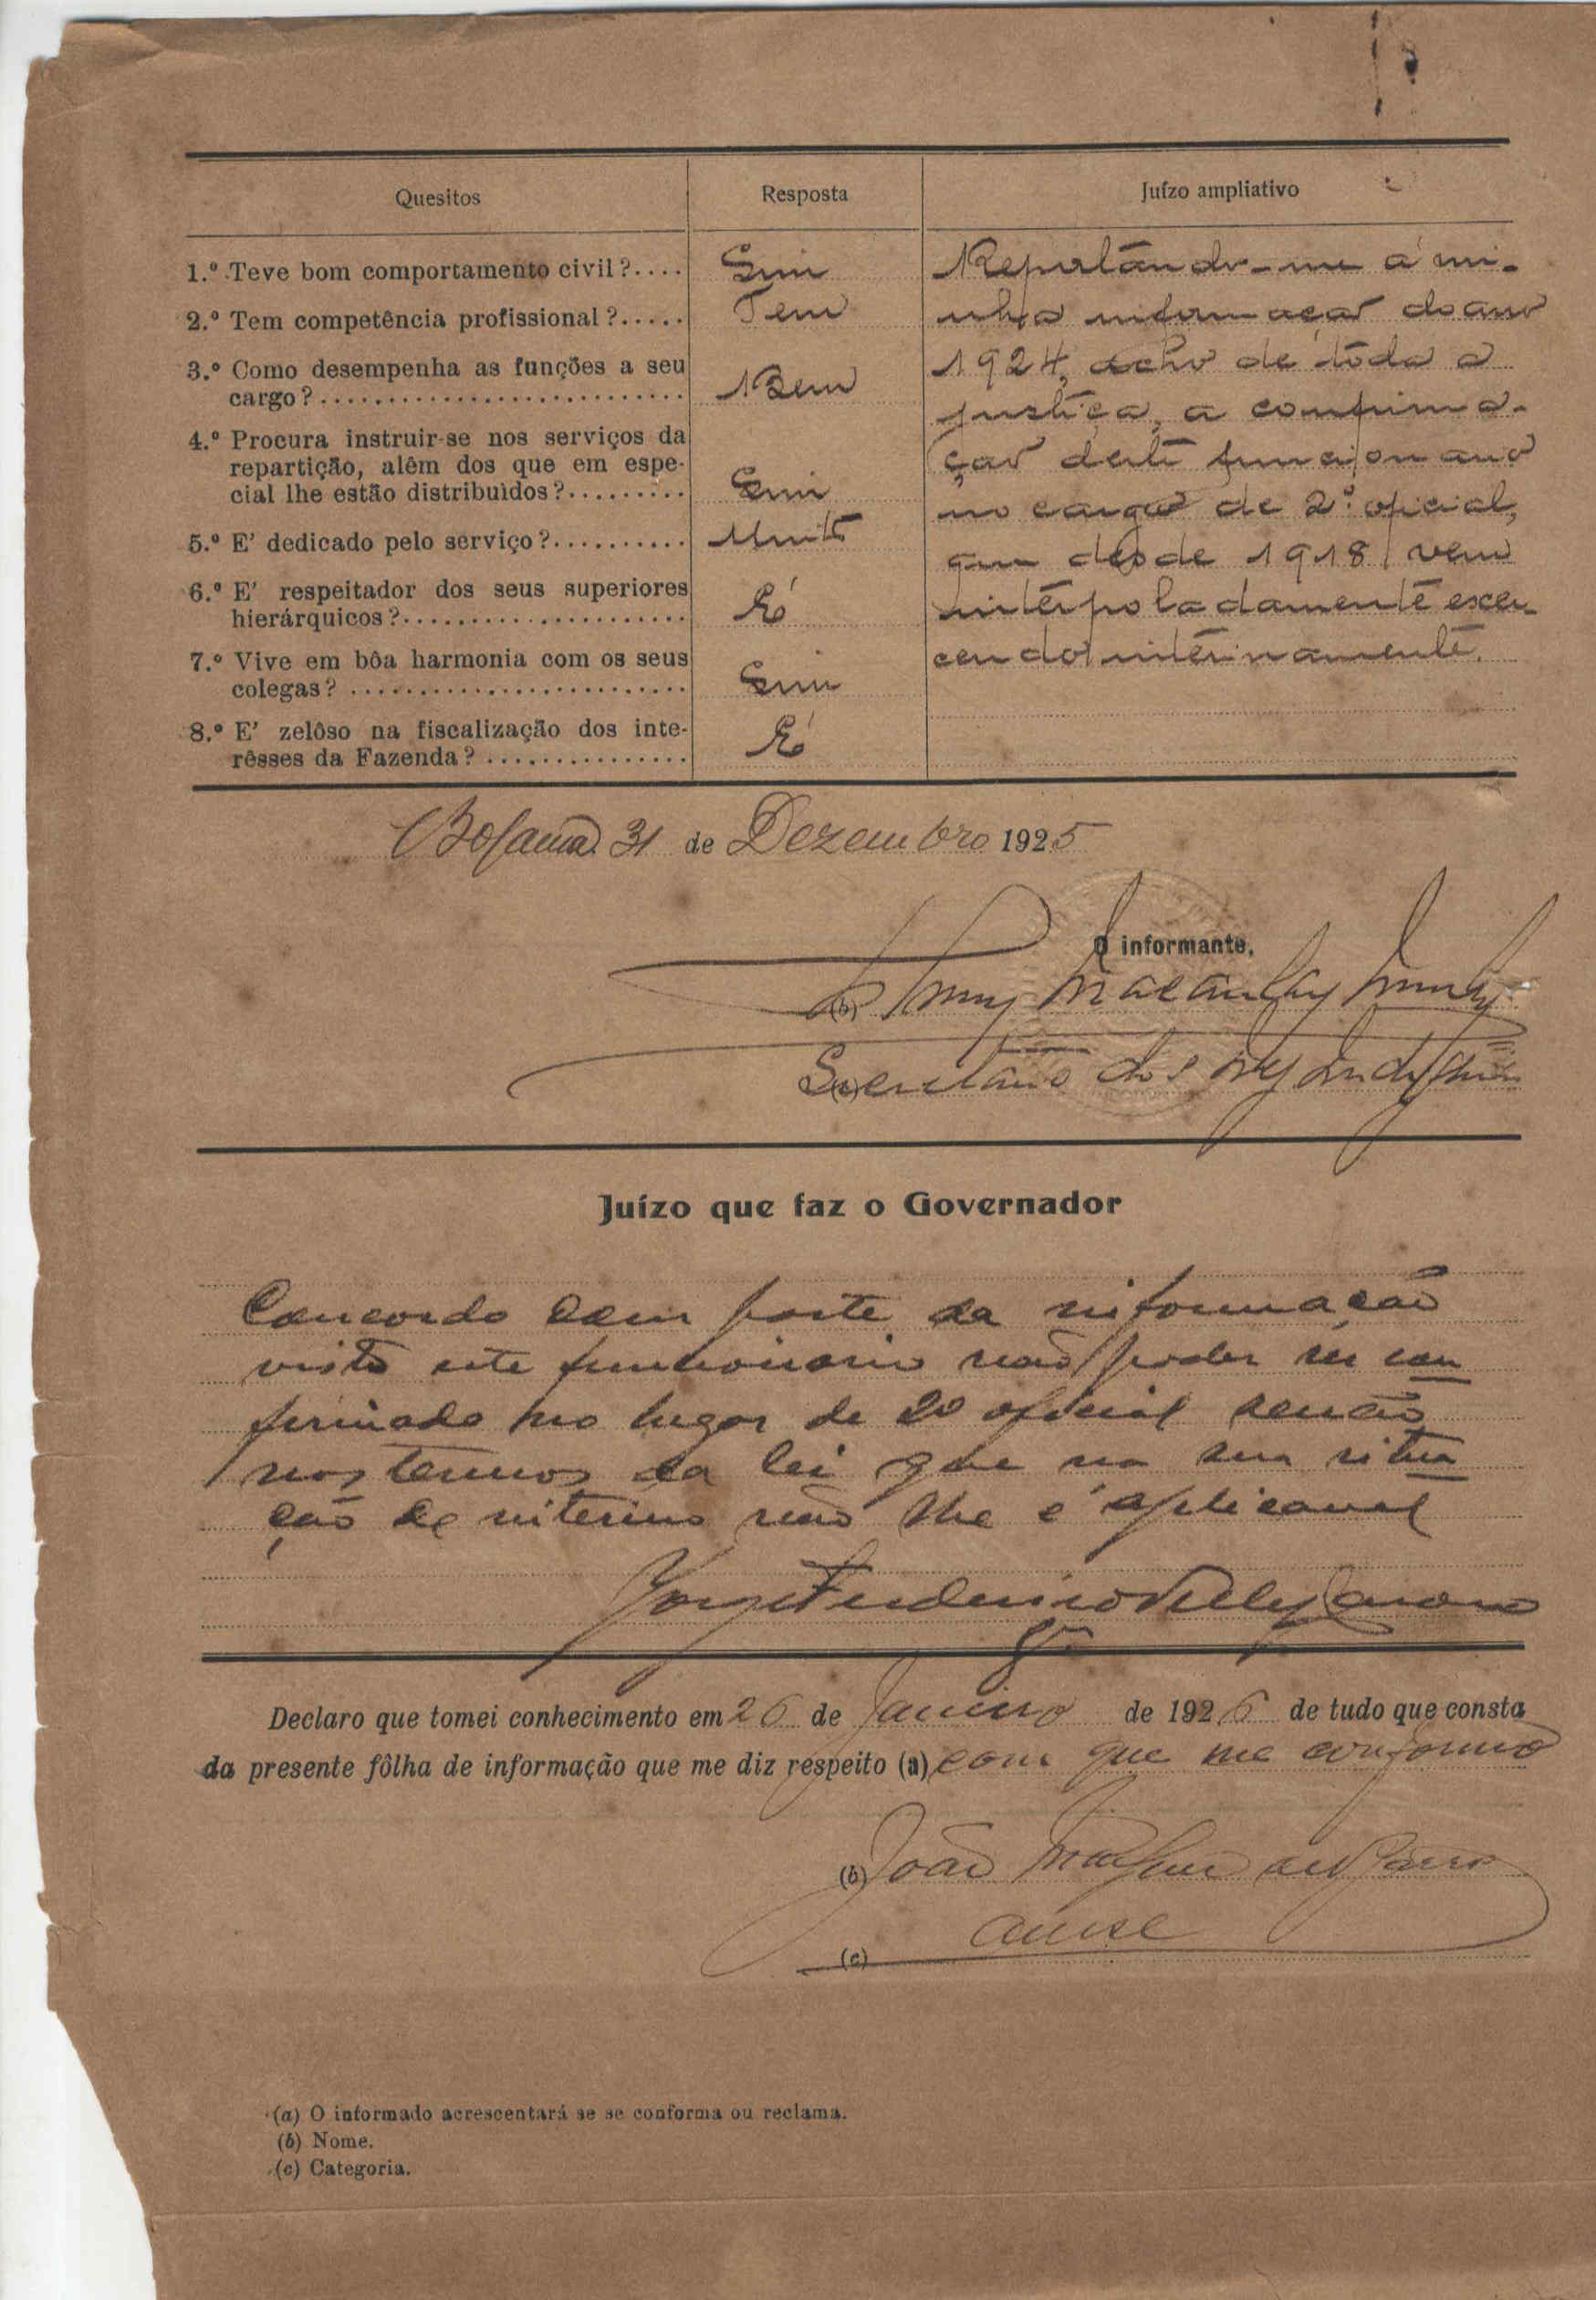 Quesitos Resposta Juízo ampliativo
1.º Teve bom comportamento civil?.... Sim Reportando-me á mi-
2.º Tem competência profissional?..... Tem nha informação do ano
3.º Como desempenha as funções a seu 1924, acho de toda a
cargo?........................... Bem justiça, a confirma-
4.º Procura instruir-se nos serviços da ção deste funcionario
repartição, alêm dos que em espe-
cial lhe estão distribuìdos?......... Sim no cargo de 2.º oficial,
5.º E' dedicado pelo serviço?.......... Muito que desde 1918 vem
6.º E' respeitador dos seus superiores interpoladamente exer-
hierárquicos?..................... É
7.º Vive em bôa harmonia com os seus cendo interinamente.
colegas?......................... Sim
8.º E' zelôso na fiscalização dos inte-
rêsses da Fazenda?............... É
Bolama 31 de Dezembro 1925
O informante,
(b)
(c) Secretario dos
Juízo que faz o Governador
Concordo com parte da informação
visto este funcionario não poder ser con
firmado no lugar de 2º oficial senão
nos termos da lei que na sua situa
ção de interino não lhe é aplicavel
Jorge Frederico Velez Caroço
Declaro que tomei conhecimento em 26 de Janeiro de 1926 de tudo que consta
da presente fôlha de informação que me diz respeito (a) com que me conformo
(b) João
(c)
(a) O informado acrescentará se se conforma ou reclama.
(b) Nome.
(c) Categoria.